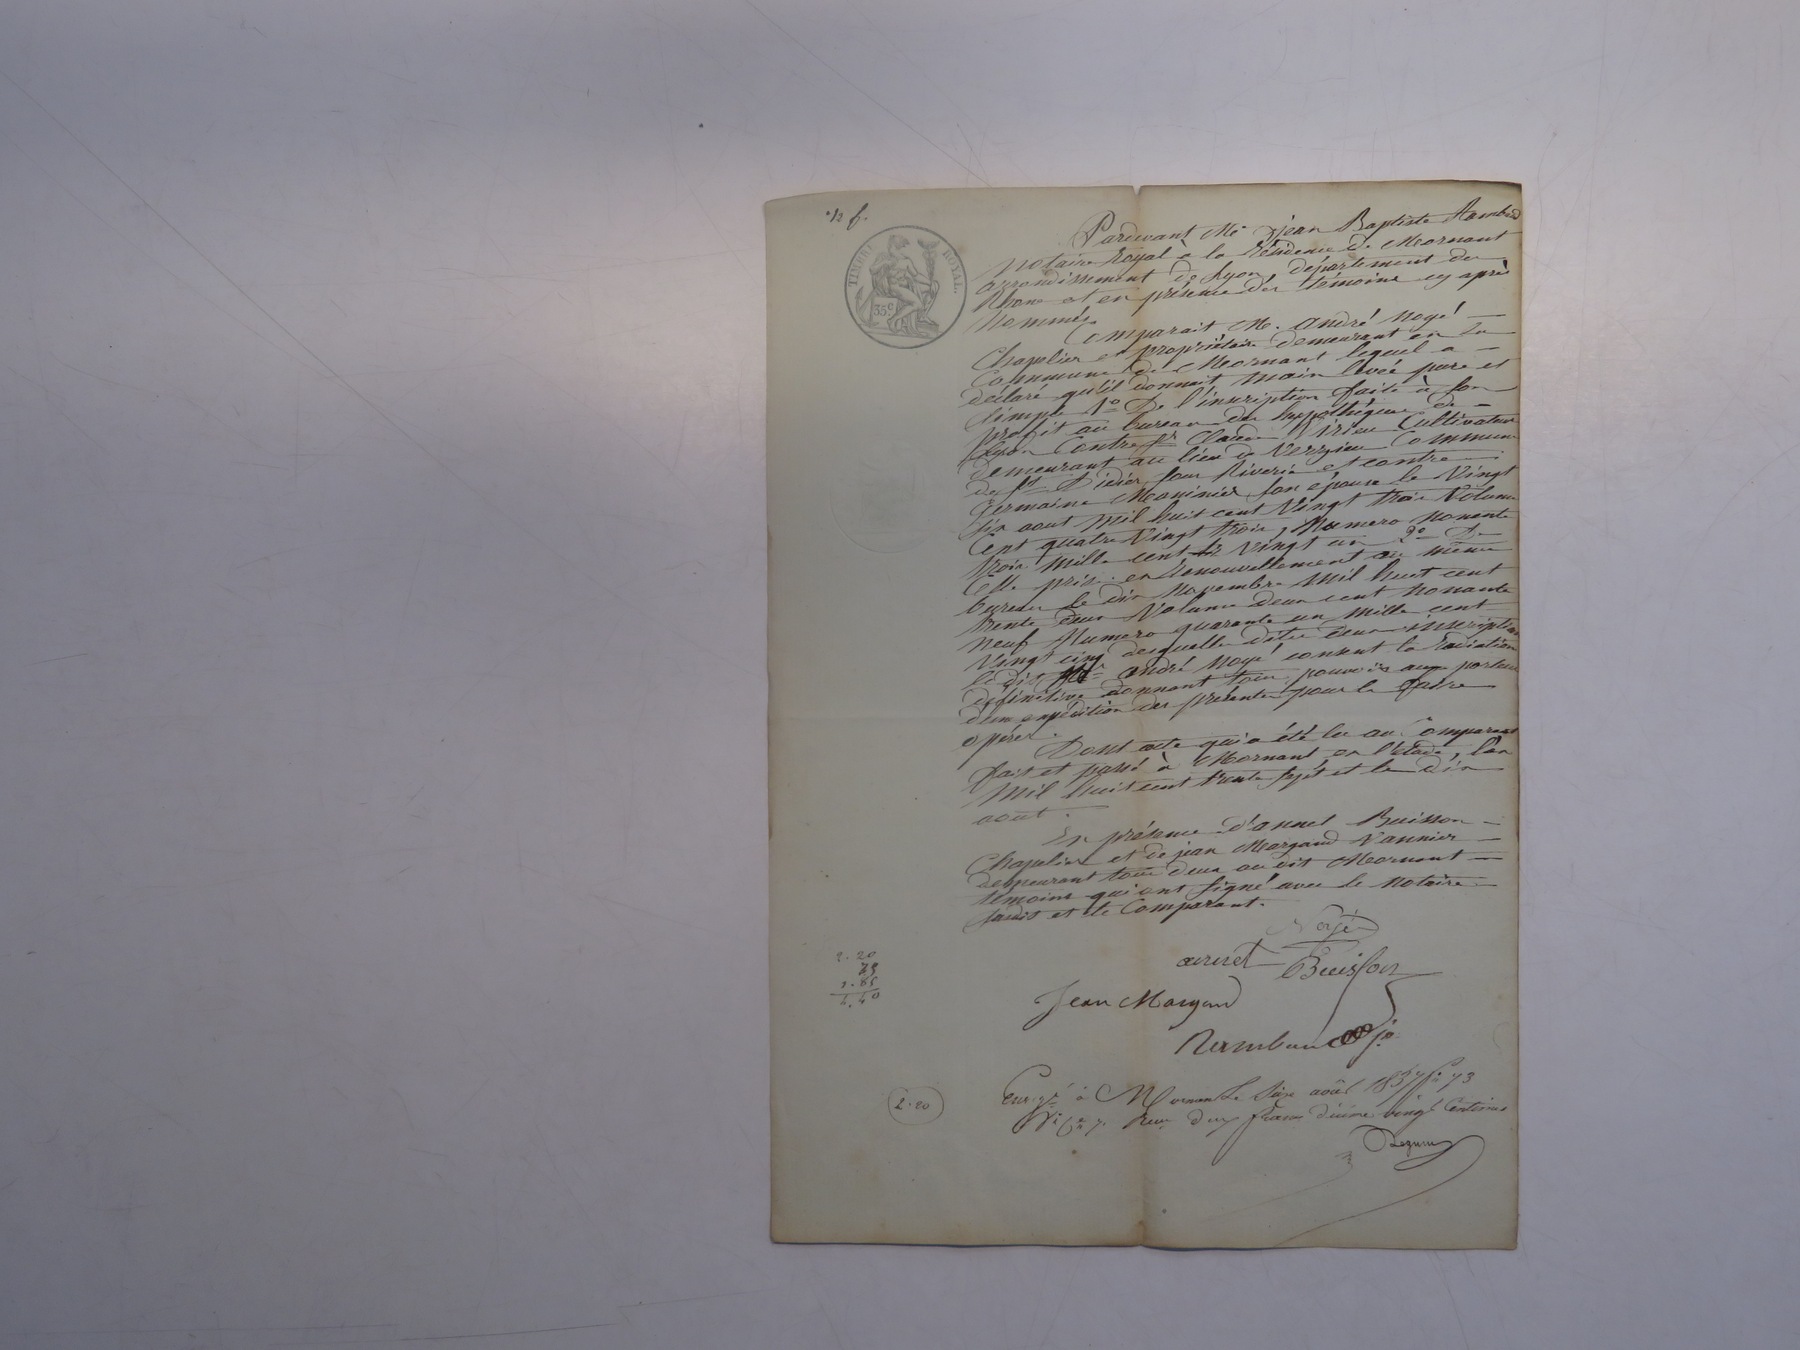 12 f.
TIMBRE ROYAL.
35c
Pardevant Me jean Baptiste Rambaud
Notaire Royal à la résidence de Mornant
arrondissement de Lyon, département du
Rhone et en présence des témoins cy après
Nommés
Comparait M. andré Noyé
Chapelier et propriétaire demeurant en la
Commune de Mornant lequel a
déclaré qu'il donnait main levée pure et
simple 1o De l'inscription faite à son
profit au bureau des hypothèques de
Lyon Contre Claude Cultivateur
demeurant au lieu de Verzieu Commune
de St Didier sous Riverie et contre
germaine son épouse le Vingt
six aout mil huit cent Vingt trois Volume
Cent quatre Vingt trois, Numero Nonente
trois mille cent Vingt un 2o De
Celle prise en Renouvellement au même
bureau le dix Novembre mil huit cent
trente deux Volume deux cent Nonante
neuf Numero quarante un mille cent
Vingt cinq desquelles dites deux inscriptions
le dit andré Noyé consent la radiation
définitive donnant tous pouvoirs aux porteurs
d'un expédition des présentes pour la faire
opérer.
Dont acte qui a été lu au Comparant
fait et passé à Mornant en l'étude, l'an
Mil huit cent trente sept et le dix
aout.
En présence d'annet Buisson
Chapelier et de jean Margand Vannier
demeurant tous deux au dit Mornant
témoins qui ont signé avec le Notaire
susdit et le Comparant.
Noyé
annet Buisson
Jean Margand
Rambaud
2.20
75
1.85
4.40
2.20
à Mornant Le août 1837 fo 73
deux francs décime vingt Centimes